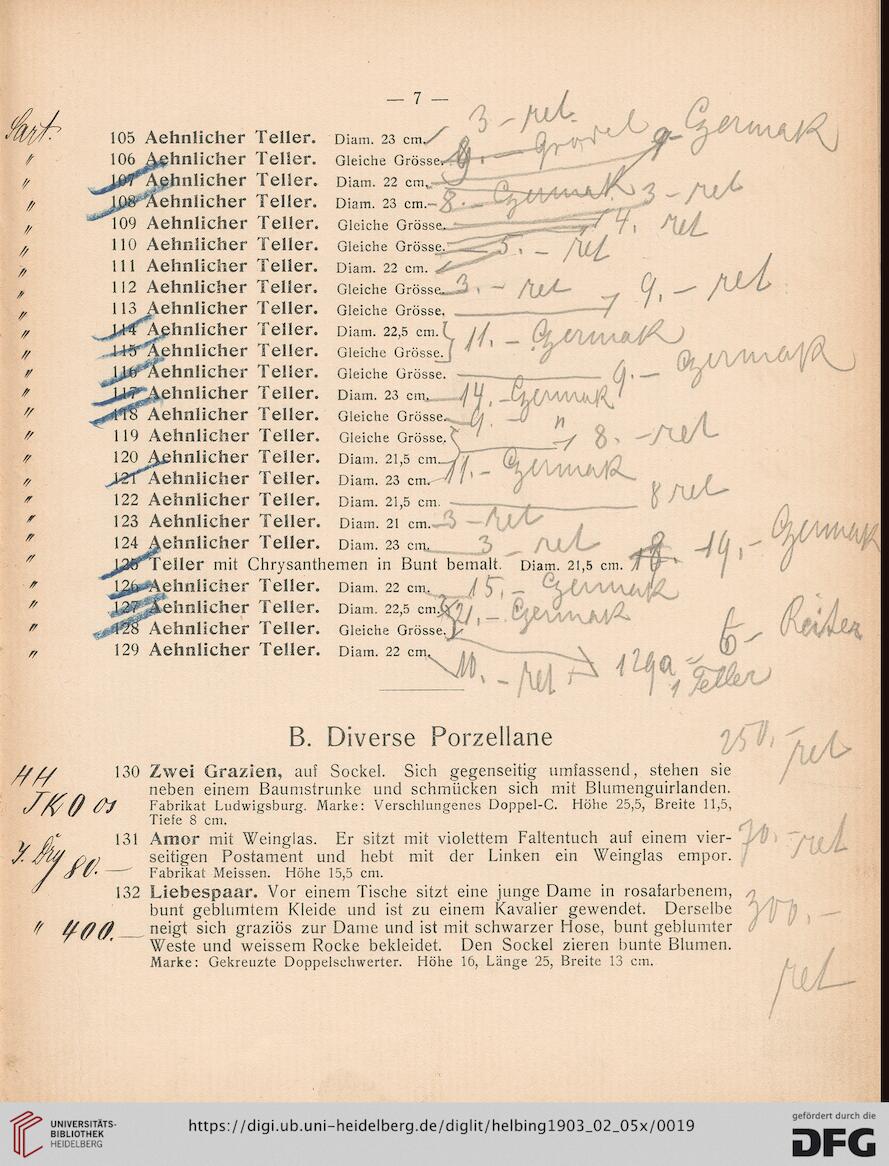 — 7 —
3 - ret.
Sart. 105 Aehnlicher Teller. Diam. 23 cm.
" 106 Aehnlicher Teller. Gleiche Grösse. 9 - Czermak
" 107 Aehnlicher Teller. Diam. 22 cm.
" 108 Aehnlicher Teller. Diam. 23 cm. 8. - Czermak 3 - ret
" 109 Aehnlicher Teller. Gleiche Grösse. 4. ret
" 110 Aehnlicher Teller. Gleiche Grösse. 5. - ret
" 111 Aehnlicher Teller. Diam. 22 cm.
" 112 Aehnlicher Teller. Gleiche Grösse. 3. - ret 9. - ret
" 113 Aehnlicher Teller. Gleiche Grösse.
" 114 Aehnlicher Teller. Diam. 22,5 cm. 11. - Czermak
" 115 Aehnlicher Teller. Gleiche Grösse.
" 116 Aehnlicher Teller. Gleiche Grösse. 9. - Czermak
" 117 Aehnlicher Teller. Diam. 23 cm. 14. - Czermak
" 118 Aehnlicher Teller. Gleiche Grösse. 9. - "
" 119 Aehnlicher Teller. Gleiche Grösse. 8. - ret
" 120 Aehnlicher Teller. Diam. 21,5 cm.
" 121 Aehnlicher Teller. Diam. 23 cm. 11. - Czermak
" 122 Aehnlicher Teller. Diam. 21,5 cm. 8 ret
" 123 Aehnlicher Teller. Diam. 21 cm. 3 - ret
" 124 Aehnlicher Teller. Diam. 23 cm. 3 - ret
" 125 Teller mit Chrysanthemen in Bunt bemalt. Diam. 21,5 cm. 19, - Czermak
" 126 Aehnlicher Teller. Diam. 22 cm. 15. - Czermak
" 127 Aehnlicher Teller. Diam. 22,5 cm. 21. - Czermak
" 128 Aehnlicher Teller. Gleiche Grösse. 6 - Reiter
" 129 Aehnlicher Teller. Diam. 22 cm. 10. - ret + 129a =
1 Teller
B. Diverse Porzellane
250. - ret
130 Zwei Grazien, auf Sockel. Sich gegenseitig umfassend, stehen sie
neben einem Baumstrunke und schmücken sich mit Blumenguirlanden.
Fabrikat Ludwigsburg. Marke: Verschlungenes Doppel-C. Höhe 25,5, Breite 11,5,
Tiefe 8 cm.
131 Amor mit Weinglas. Er sitzt mit violettem Faltentuch auf einem vier- 70. - ret
80. — seitigen Postament und hebt mit der Linken ein Weinglas empor.
Fabrikat Meissen. Höhe 15,5 cm.
132 Liebespaar. Vor einem Tische sitzt eine junge Dame in rosafarbenem,
bunt geblumtem Kleide und ist zu einem Kavalier gewendet. Derselbe 300. -
" 400. — neigt sich graziös zur Dame und ist mit schwarzer Hose, bunt geblumter
Weste und weissem Rocke bekleidet. Den Sockel zieren bunte Blumen.
Marke: Gekreuzte Doppelschwerter. Höhe 16, Länge 25, Breite 13 cm. ret
UNIVERSITÄTS-
BIBLIOTHEK
HEIDELBERG
https://digi.ub.uni-heidelberg.de/diglit/helbing1903_02_05x/0019
gefördert durch die
DFG